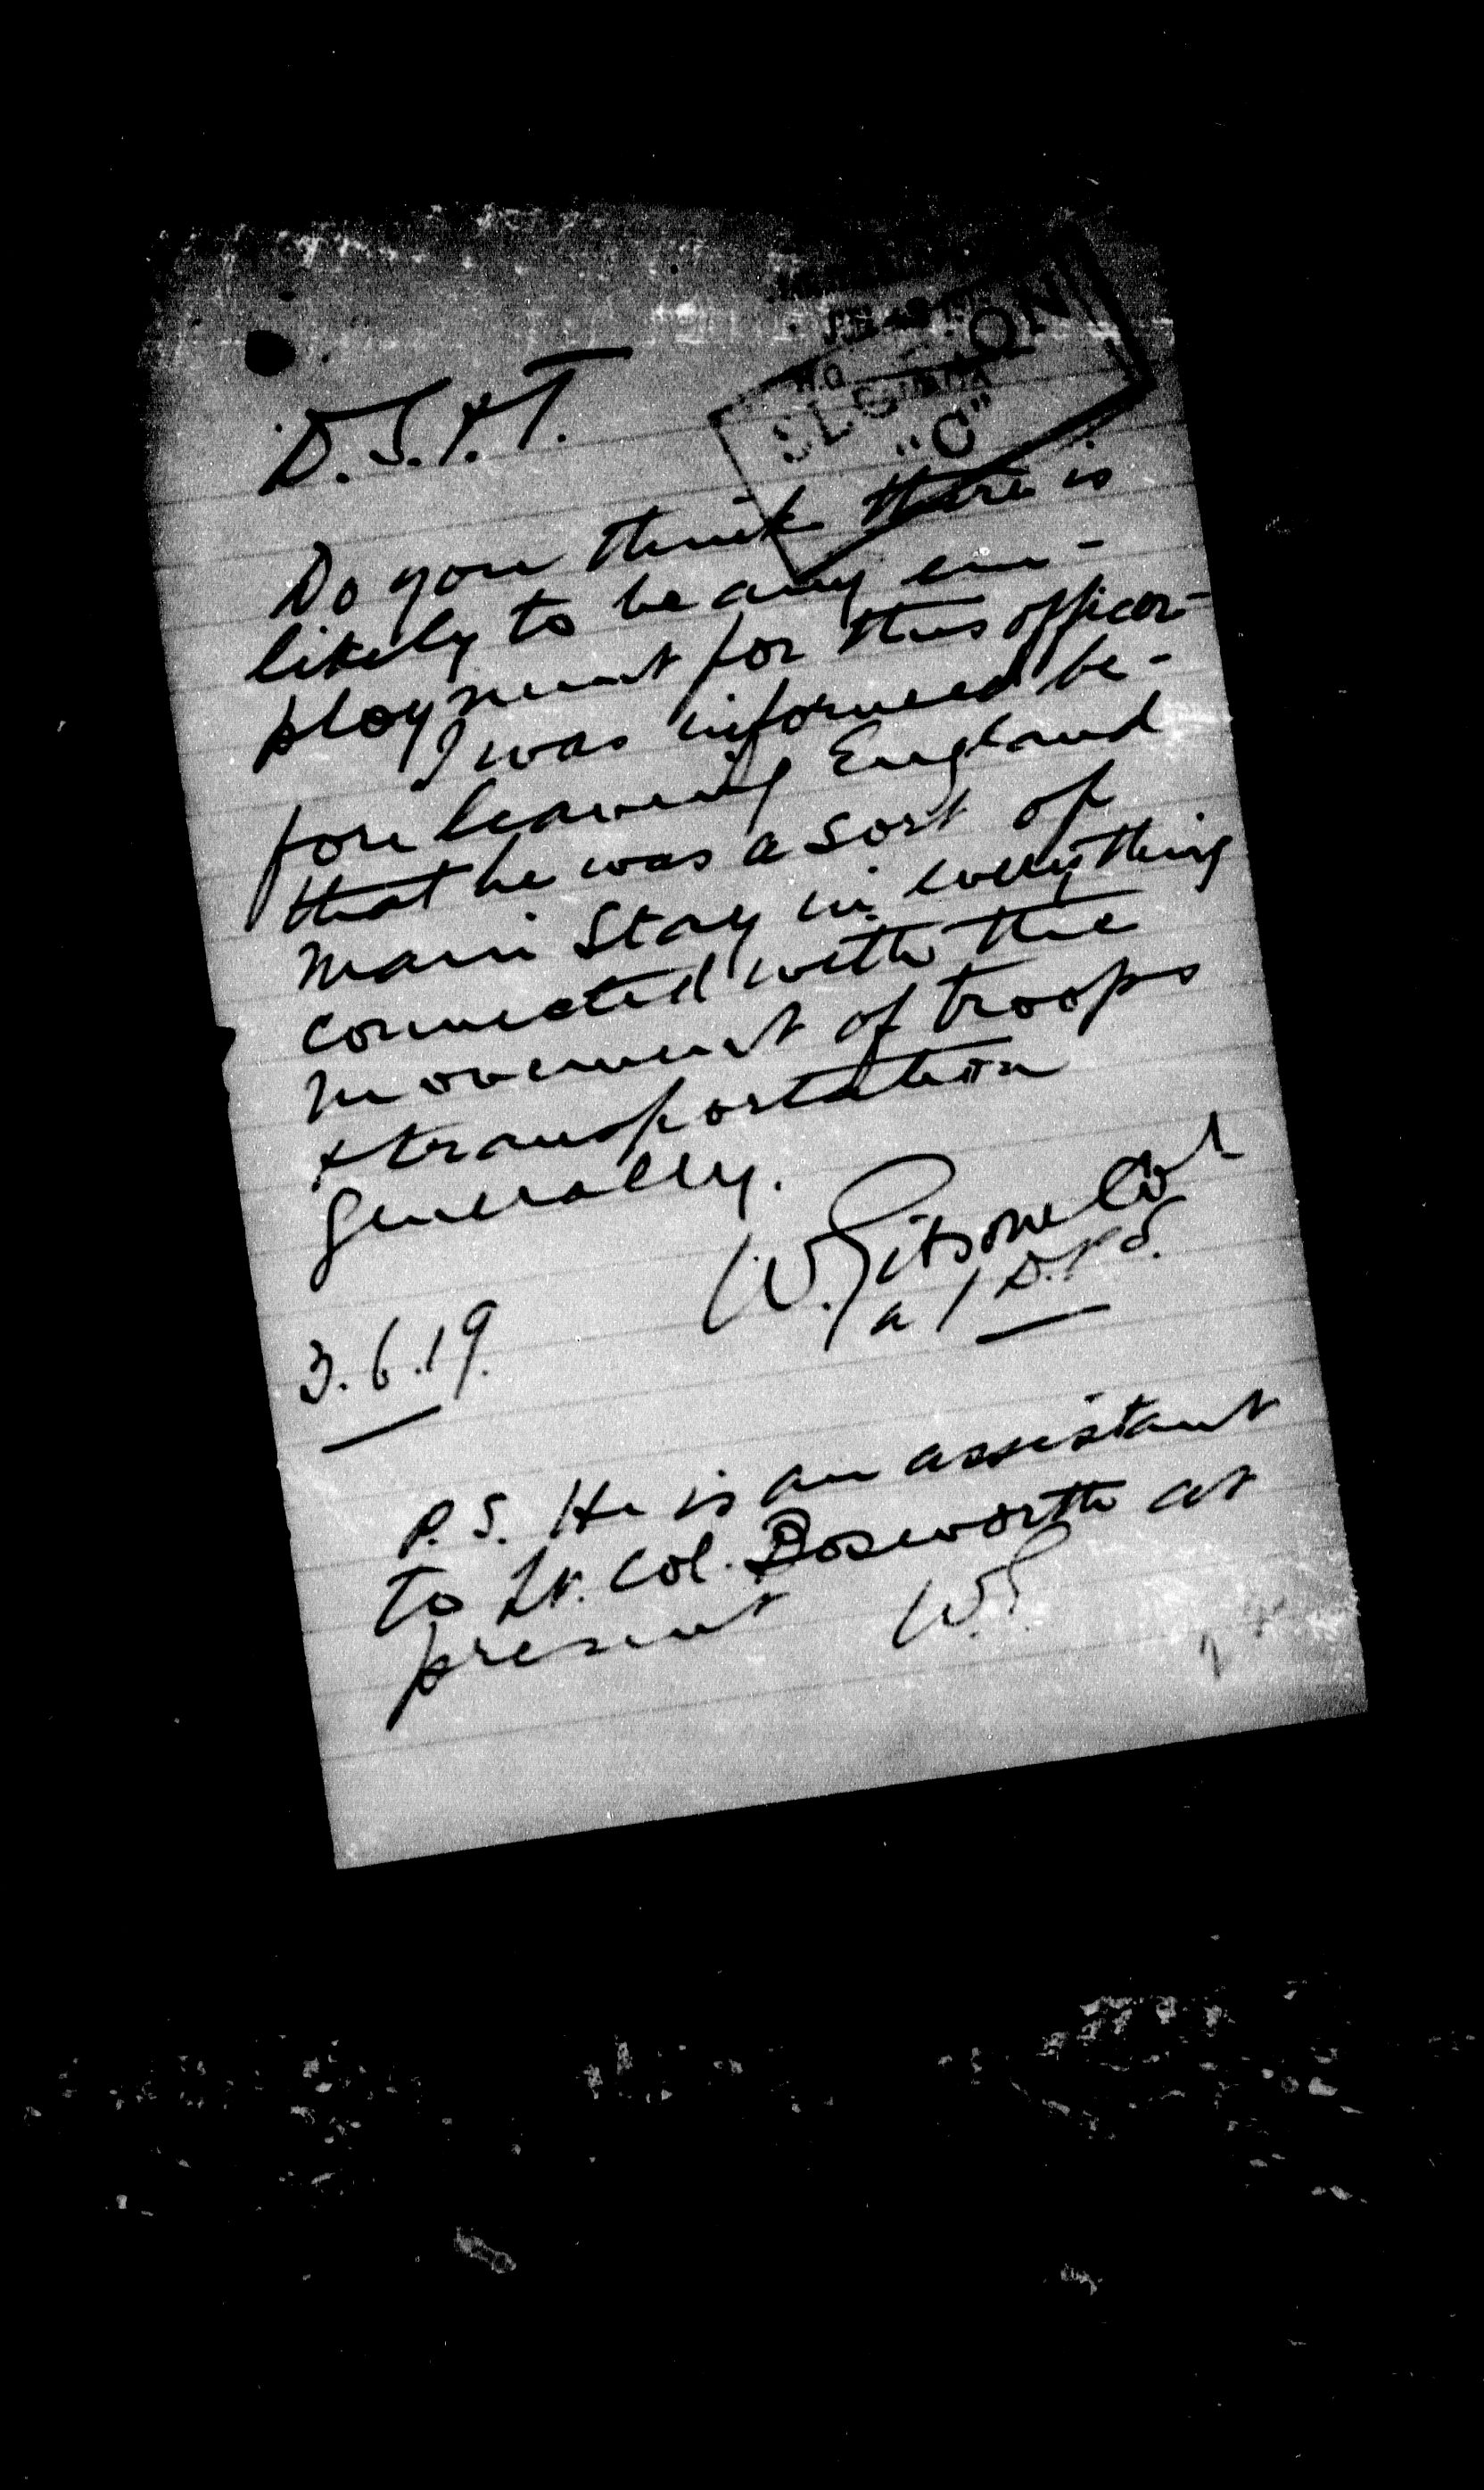 SECTION
"C"
D.S.&T.
Do you think there is
likely to be any em-
ployment for this officer-
I was informed be-
fore leaving England
that he was a sort of
main stay in everything
connected with the
movement of troops
& transportation
generally.
W. Col
a/D.P.S.
3.6.19.
P.S. He is an assistant
to Lt. Col. Bosworth at
present W.G.